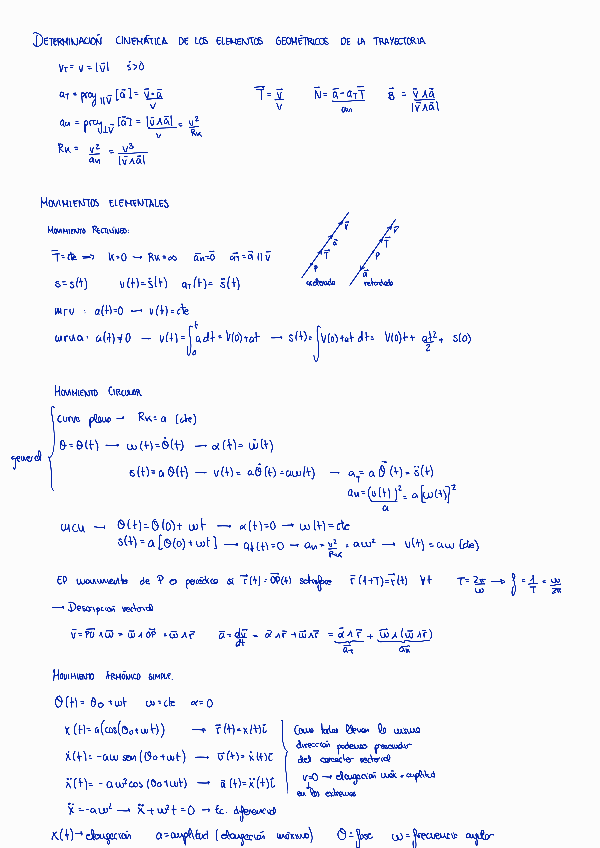 DETERMINACIÓN CINEMÁTICA DE LOS ELEMENTOS GEOMÉTRICOS DE LA TRAYECTORIA
v_T = v = |v⃗| ṡ>0
a_T = proy_∥v⃗ [a⃗] = (v⃗·a⃗)/v T⃗ = v⃗/v N⃗ = (a⃗ - a_T T⃗)/a_N B⃗ = (v⃗∧a⃗)/|v⃗∧a⃗|
a_N = proy_⊥v⃗ [a⃗] = |v⃗∧a⃗|/v = v²/R_K
R_K = v²/a_N = v³/|v⃗∧a⃗|
MOVIMIENTOS ELEMENTALES
MOVIMIENTO RECTILÍNEO:
T⃗ = cte ⟹ K=0 → R_K=∞ a⃗_N=0⃗ a⃗_T=a⃗ ∥ v⃗
P T⃗ a⃗ v⃗ a⃗ P T⃗ v⃗
acelerado retardado
s=s(t) v(t)=ṡ(t) a_T(t)=s̈(t)
mru : a(t)=0 → v(t)=cte
mrua: a(t)≠0 → v(t)=∫₀ᵗ a dt = v(0)+at → s(t)=∫v(0)+at dt = v(0)t + at²/2 + s(0)
MOVIMIENTO CIRCULAR
general
curva plana → R_K = a (cte)
θ=θ(t) → ω(t)=θ̇(t) → α(t)=ω̇(t)
s(t)=a θ(t) → v(t)=aθ̇(t)=aω(t) → a_T=a θ̈(t)=s̈(t)
a_N=(v(t))²/a = a[ω(t)]²
MCU → θ(t)=θ(0)+ωt → α(t)=0 → ω(t)=cte
s(t)=a[θ(0)+ωt] → a_T(t)=0 → a_N=v²/R_K=aω² → v(t)=aω (cte)
El movimiento de P es periódico si r⃗(t)=OP⃗(t) satisface r⃗(t+T)=r⃗(t) ∀t T=2π/ω → f=1/T=ω/2π
→ Descripción vectorial
v⃗ = PO⃗∧ω⃗ = ω⃗∧OP⃗ = ω⃗∧r⃗ a⃗=dv⃗/dt = α⃗∧r⃗+ω⃗∧r⃗ = α⃗∧r⃗ + ω⃗∧(ω⃗∧r⃗)
a⃗_T a⃗_N
MOVIMIENTO ARMÓNICO SIMPLE.
θ(t)=θ₀+ωt ω=cte α=0
x(t)=a(cos(θ₀+ωt)) → r⃗(t)=x(t)i⃗
ẋ(t)=-aω sen(θ₀+ωt) → v⃗(t)=ẋ(t)i⃗
ẍ(t)=-aω²cos(θ₀+ωt) → a⃗(t)=ẍ(t)i⃗
Como todas llevan la misma
dirección podemos prescindir
del carácter vectorial
v=0 → elongación máx = amplitud
en los extremos
ẍ=-aω² → ẍ+ω²t=0 → Ec. diferencial
x(t)→elongación a=amplitud (elongación máxima) θ=fase ω=frecuencia angular